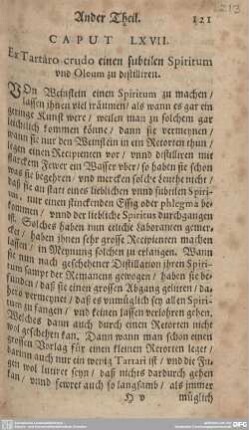 1213
Ander Theil. 121
CAPUT LXVII.
Ex Tartaro crudo einen subtilen Spiritum
vnd Oleum zu destilliren.
VOn Weinstein einen Spiritum zu machen /
lassen ihnen viel träumen / als wann es gar ein
geringe Kunst were / weilen man zu solchem gar
leichtlich kommen könne / dann sie vermeynen /
wann sie nur den Weinstein in ein Retorten thun /
legen einen Recipienten vor / vnnd destilliren mit
starckem Fewer ein Wasser vber / so haben sie schon
was sie begehren / vnd mercken solche Leuthe nicht /
daß sie an statt eines lieblichen vnnd subtilen Spiri-
nur einen stinckenden Essig oder phlegma be-
kommen / vnnd der liebliche Spiritus durchgangen
Solches haben nun etliche Laboranten gemer-
/ haben ihnen sehr grosse Recipienten machen
lassen / in Meynung solchen zu erlangen. Wann
sie nun nach geschehener Destillation ihren Spiri-
tum sampt der Remanentz gewogen / haben sie be-
funden / daß sie einen grossen Abgang gelitten / da-
hero vermeynet / daß es vnmüglich sey allen Spiri-
tum zu fangen / vnd keinen lassen verlohren gehen.
Welches dann auch durch einen Retorten nicht
wol geschehen kan. Dann wann man schon einen
grossen Vorlag für einen kleinen Retorten leget /
darinn auch nur ein wenig Tartari ist / vnd die Fu-
gen wol lutiret seyn / daß nichts dardurch gehen
kan / vnnd fewret auch so langsamb / als immer
H v müglich